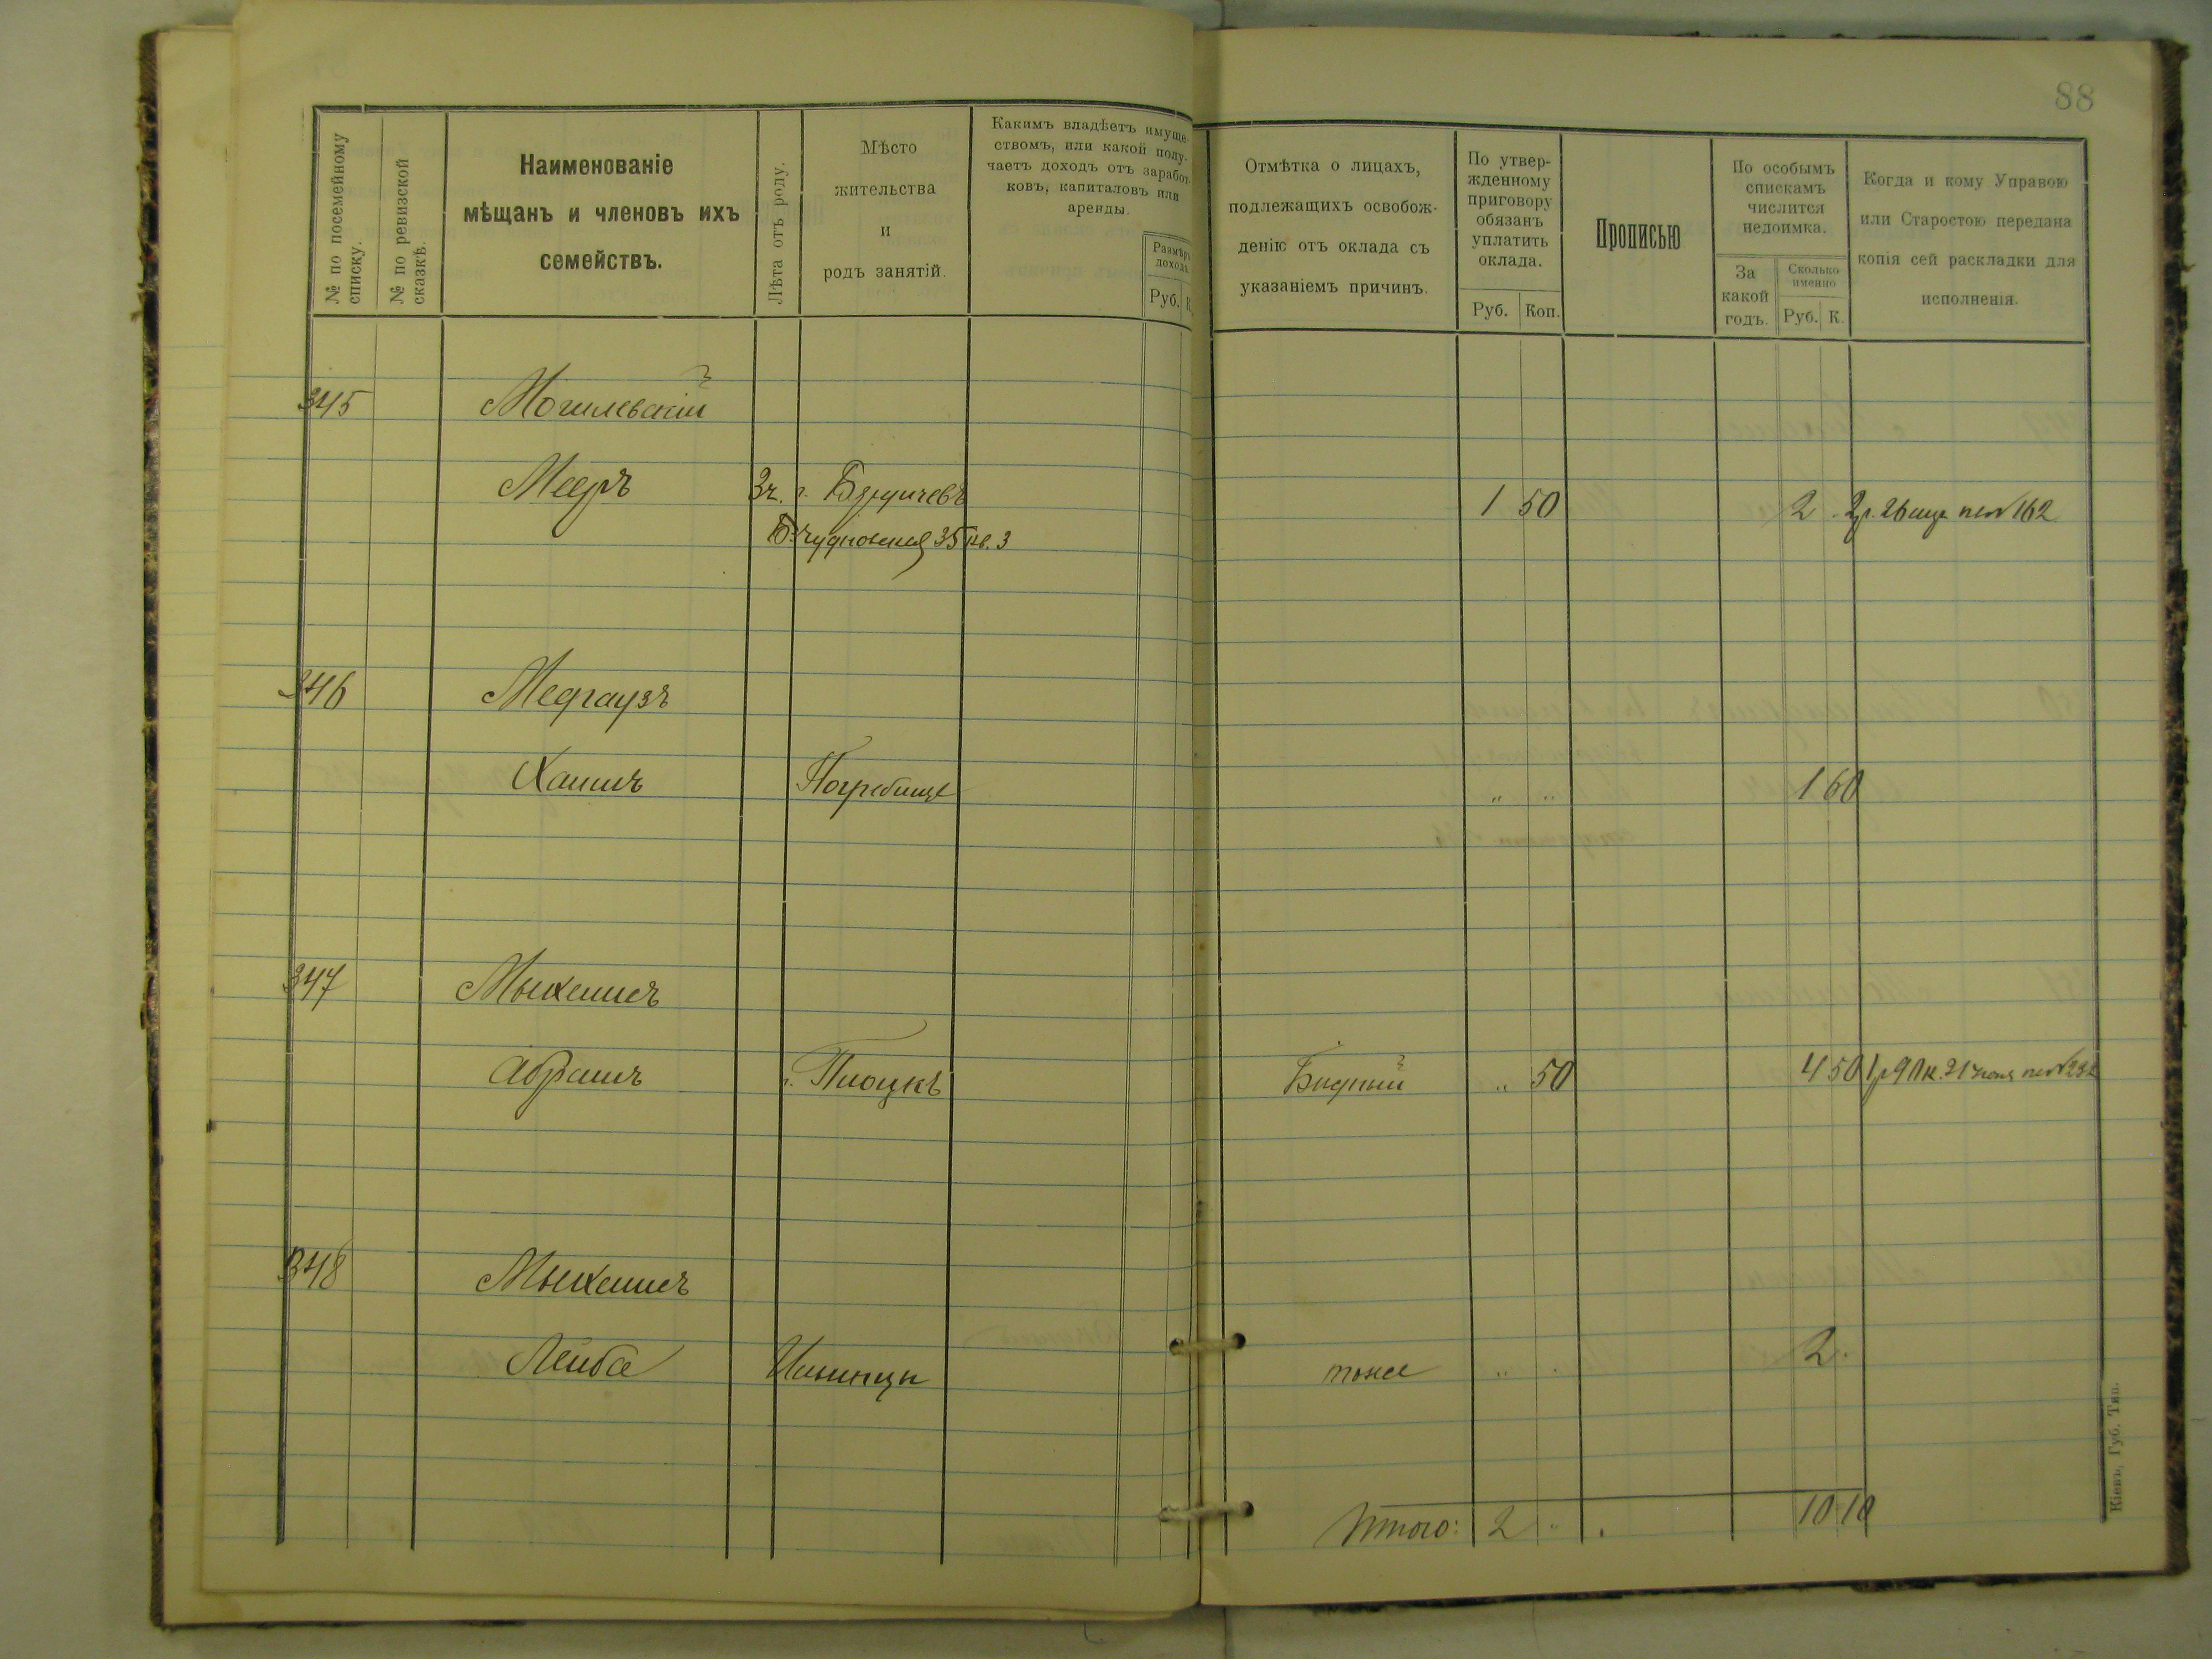 88
№ по посемейному списку.
№ по ревизской сказкѣ.
Наименованіе
мѣщанъ и членовъ ихъ
семействъ.
Лѣта отъ роду.
Мѣсто
жительства
и
родъ занятій.
Какимъ владѣетъ имуще-
ствомъ, или какой полу-
чаетъ доходъ отъ заработ-
ковъ, капиталовъ или
аренды.
Размѣръ
дохода
Руб. К.
Отмѣтка о лицахъ,
подлежащихъ освобож-
денію отъ оклада съ
указаніемъ причинъ.
По утвер-
жденному
приговору
обязанъ
уплатить
оклада.
Руб. Коп.
Прописью
По особымъ
спискамъ
числится
недоимка.
За
какой
годъ.
Сколько
именно
Руб. К.
Когда и кому Управою
или Старостою передана
копія сей раскладки для
исполненія.
345 Могилевскій
Мееръ 3ч. г. Бердичевъ 1 50 2 2р. 26 № 162
Б. Чудновская 35 кв. 3
346 Медгаузъ
Хаимъ Погребище " " 1 60
347
Абрамъ г. Плоцкъ Бѣдный " 50 4 50 1р 90к. 21 №
348
Лейба Ильинцы тоже " 2.
Итого: 2 " 10 10
Кіевъ, Губ. Тип.